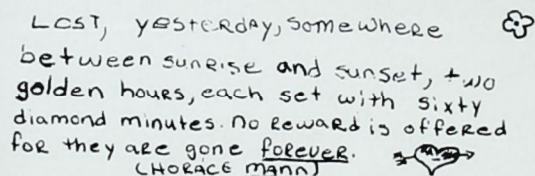 LOST, yesterday, somewhere
between sunrise and sunset, two
golden hours, each set with sixty
diamond minutes. no reward is offered
for they are gone forever.
(HORACE MANN)